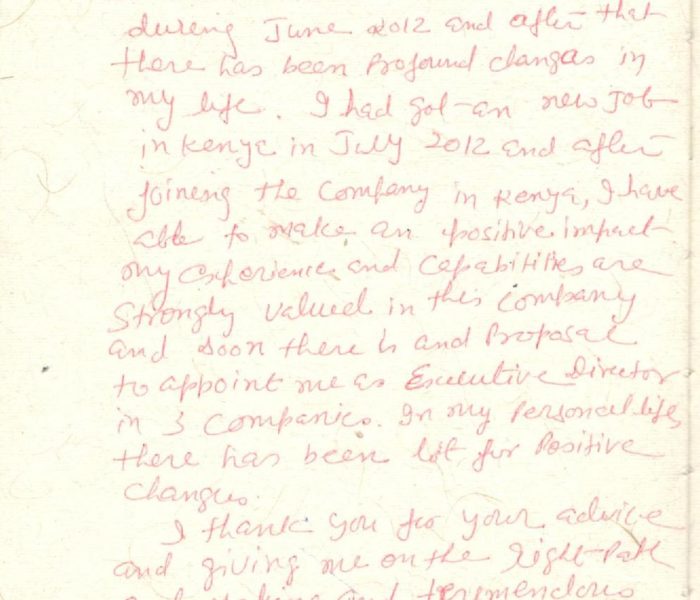 during June 2012 and after that
there has been Profound changes in
my life. I had got an new Job
in Kenya in JULY 2012 and after
joining the Company in Kenya, I have
able to make an positive impact
my experience and capabilities are
Strongly valued in this company
and soon there is and Proposal
to appoint me as Executive Director
in 3 Companies. In my Personal life,
there has been lot for Positive
Changes.
I thank you for your advice
and giving me on the right Path
and making and tremendous